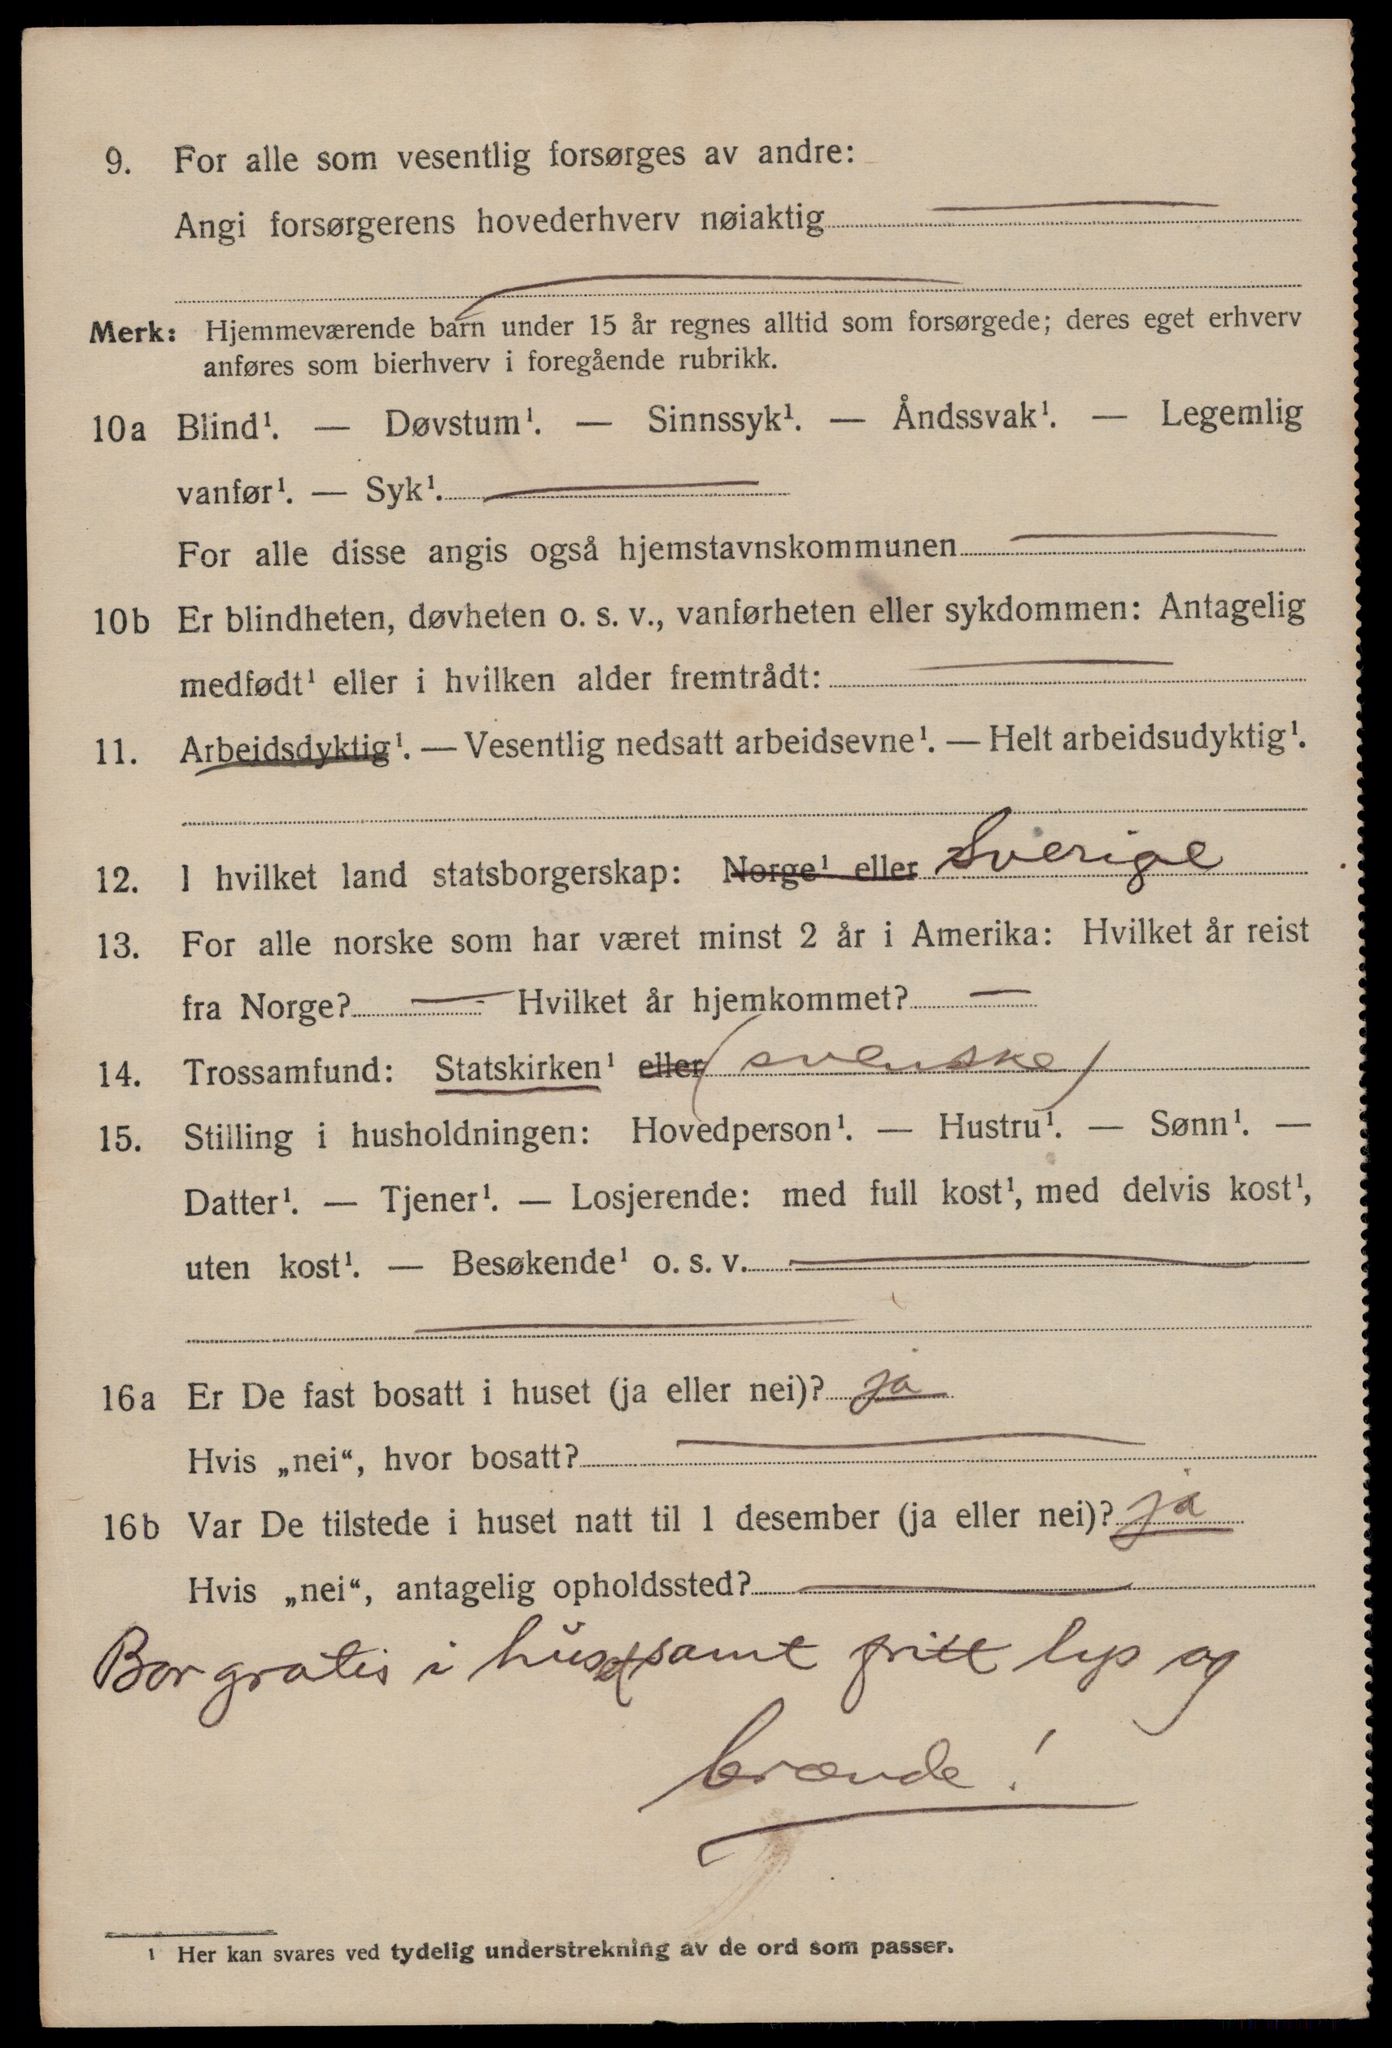 9. For alle som vesentlig forsørges av andre:
Angi forsørgerens hovederhverv nøiaktig
Merk: Hjemmeværende barn under 15 år regnes alltid som forsørgede; deres eget erhverv
anføres som bierhverv i foregående rubrikk.
10a Blind¹. — Døvstum¹. — Sinnssyk¹. — Åndssvak¹. — Legemlig
vanfør¹. — Syk¹.
For alle disse angis også hjemstavnskommunen
10b Er blindheten, døvheten o. s. v., vanførheten eller sykdommen: Antagelig
medfødt¹ eller i hvilken alder fremtrådt:
11. Arbeidsdyktig¹. — Vesentlig nedsatt arbeidsevne¹. — Helt arbeidsudyktig¹.
12. I hvilket land statsborgerskap: Norge¹ eller Sverige
13. For alle norske som har været minst 2 år i Amerika: Hvilket år reist
fra Norge? — Hvilket år hjemkommet? —
14. Trossamfund: Statskirken¹ eller (svenske)
15. Stilling i husholdningen: Hovedperson¹. — Hustru¹. — Sønn¹. —
Datter¹. — Tjener¹. — Losjerende: med full kost¹, med delvis kost¹,
uten kost¹. — Besøkende¹ o. s. v.
16a Er De fast bosatt i huset (ja eller nei)? ja
Hvis „nei“, hvor bosatt?
16b Var De tilstede i huset natt til 1 desember (ja eller nei)? ja
Hvis „nei“, antagelig opholdssted?
Bor gratis i huset samt fritt lys og
brænde!
¹ Her kan svares ved tydelig understrekning av de ord som passer.